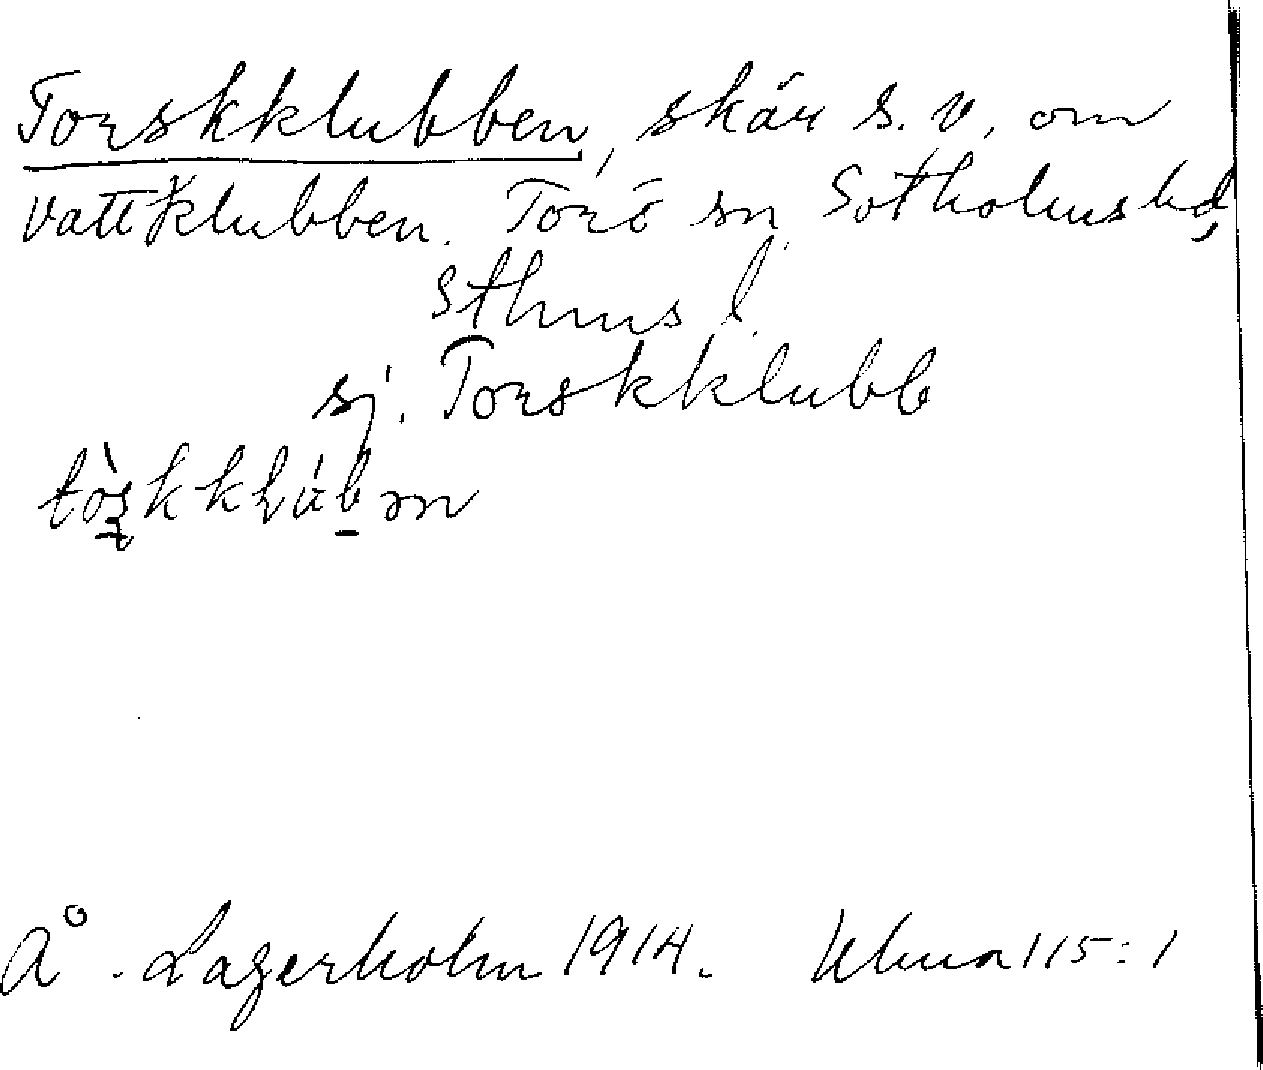 Torskklubben, skär s.v. om
Vattklubben. Torö sn Sotholms hd,
Sthms l.
sj. Torskklubb
Å. Lagerholm 1914. Uhua 115:1